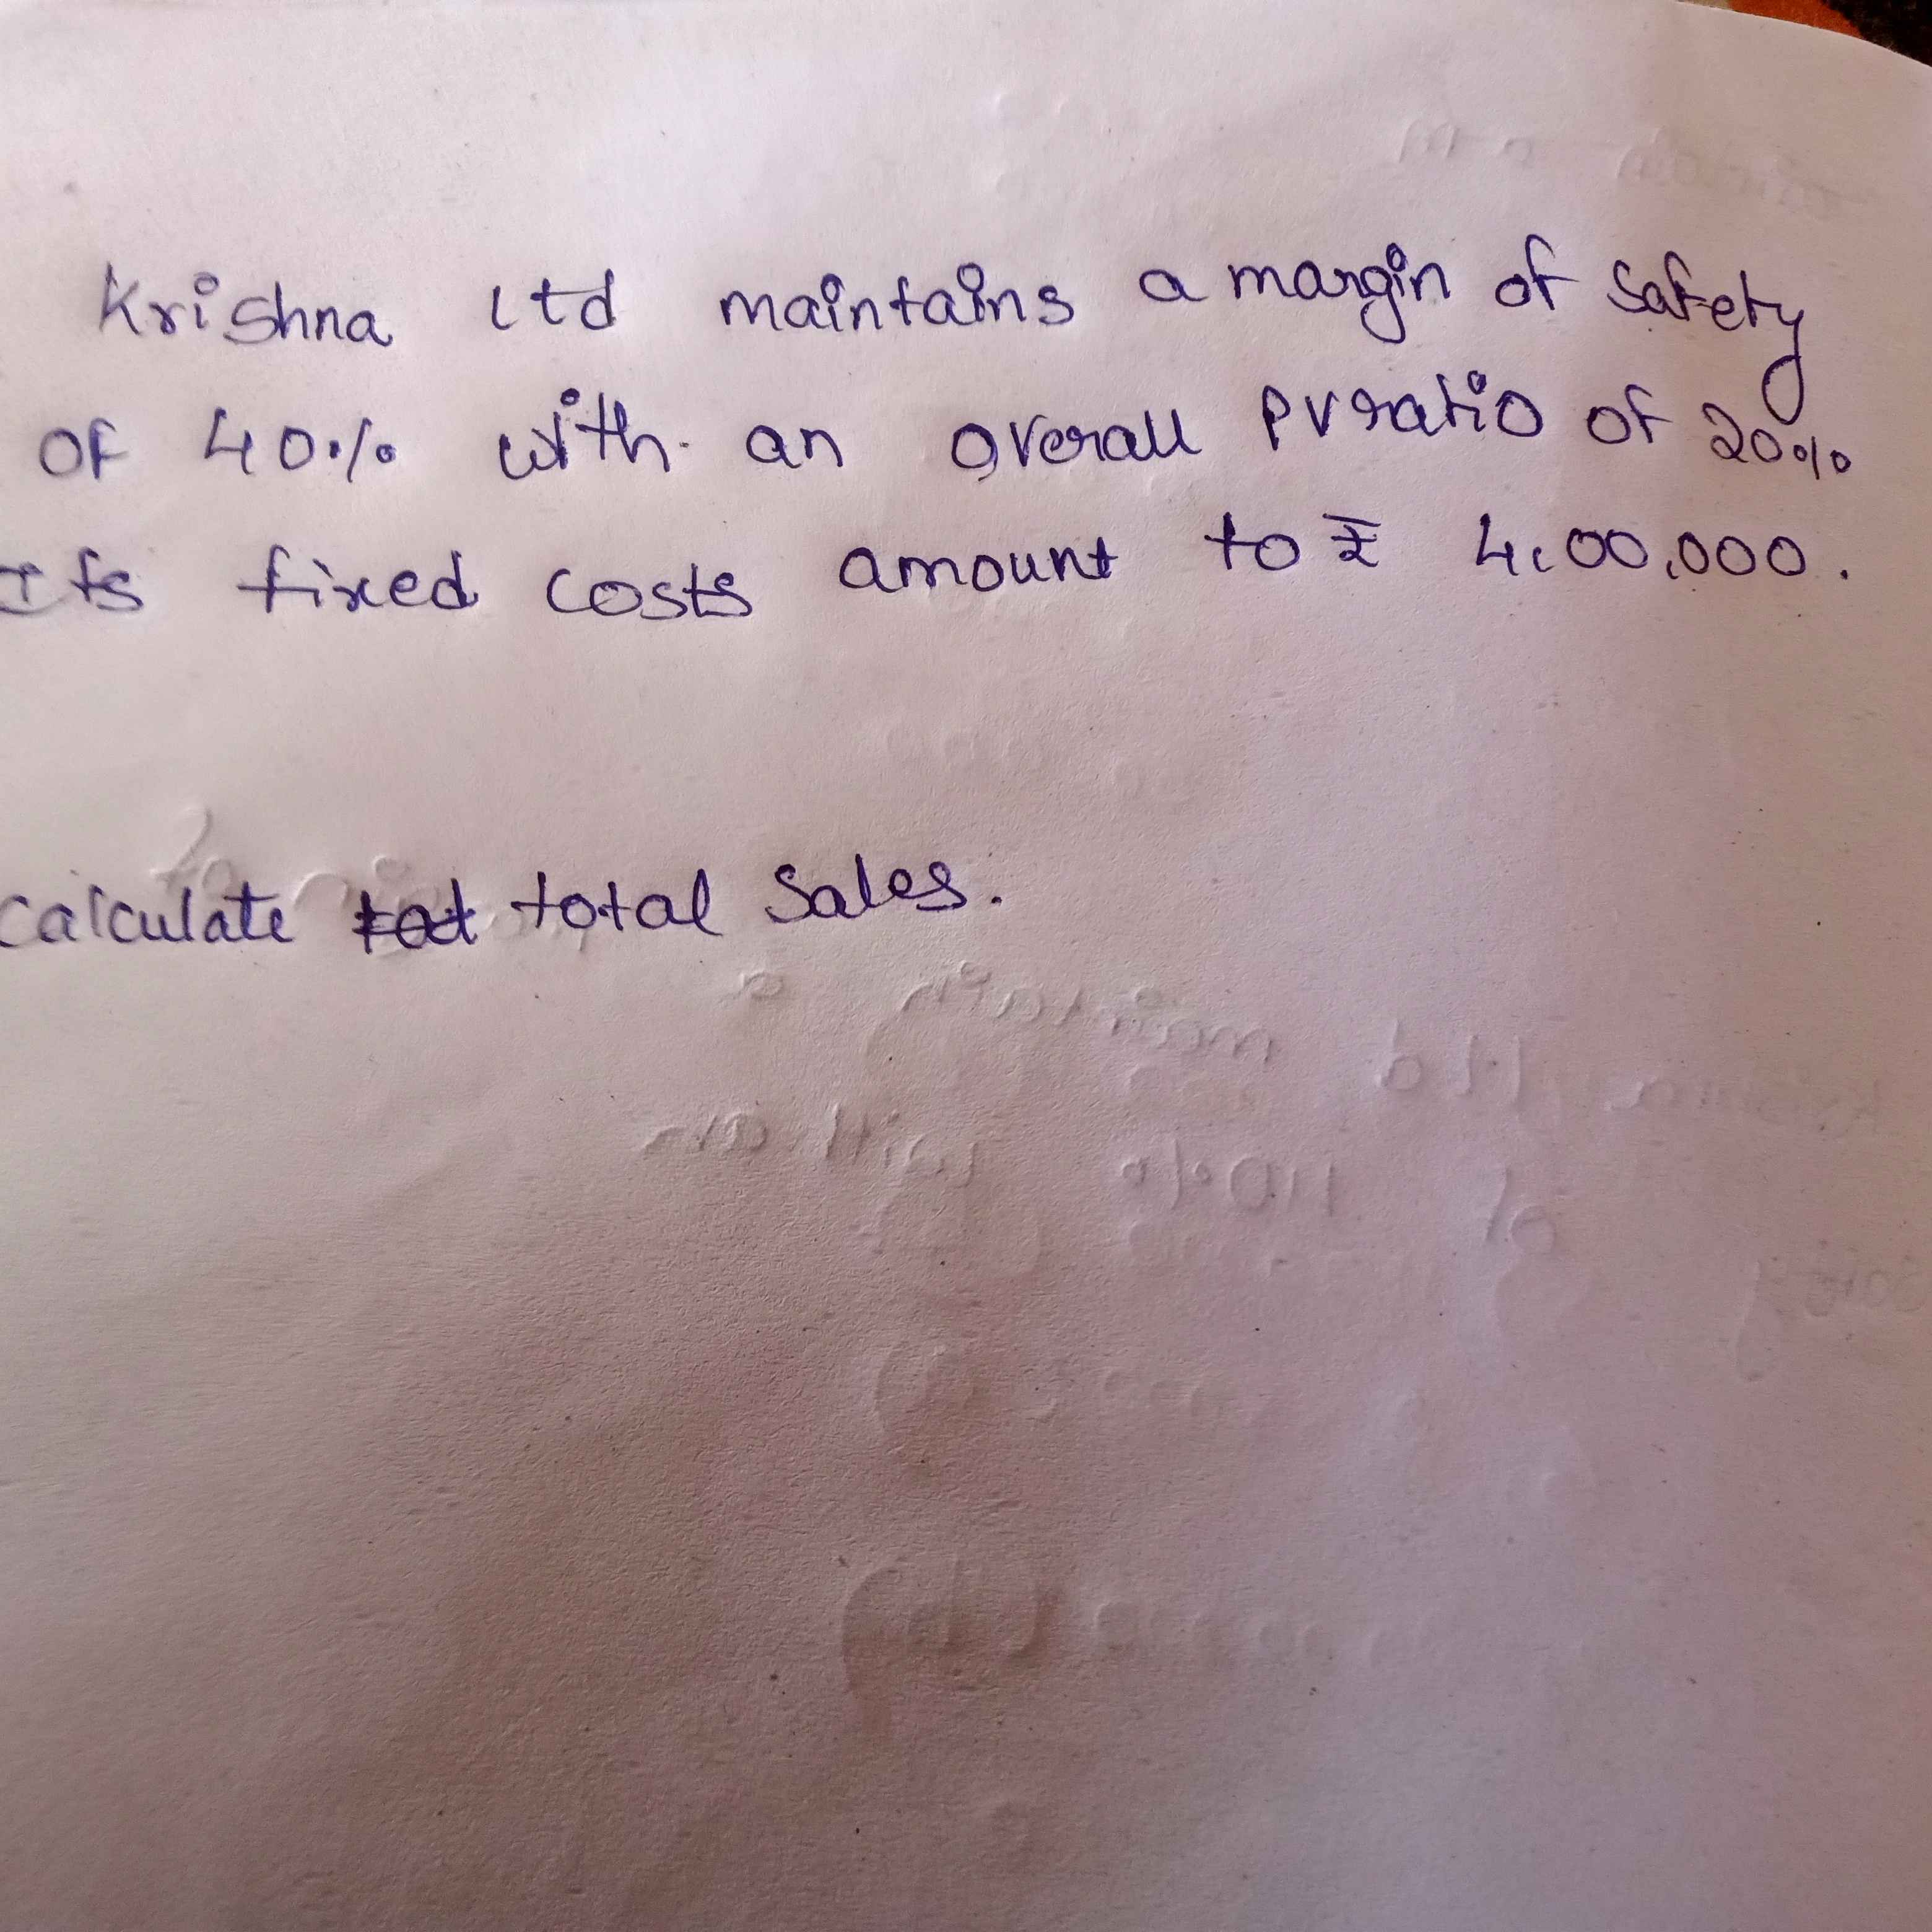 Krishna Ltd maintains a margin of Safety
of 40% with an overall PV ratio of 20%
Its fixed costs amount to ₹ 4,00,000.
Calculate tot total Sales.